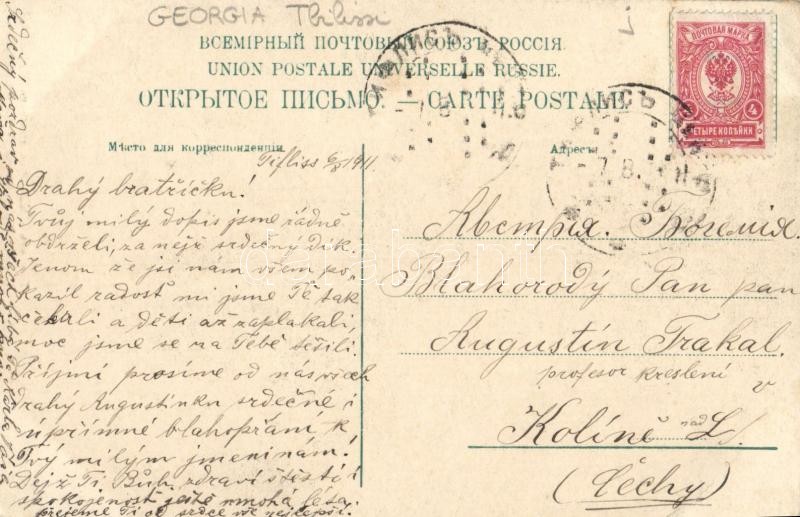 GEORGIA Tbilissi
ВСЕМІРНЫЙ ПОЧТОВЫЙ СОЮЗЪ. РОССІЯ.
UNION POSTALE UNIVERSELLE RUSSIE.
ОТКРЫТОЕ ПИСЬМО. — CARTE POSTALE.
Мѣсто для корреспонденціи
Адресъ
ПОЧТОВАЯ МАРКА
4
ЧЕТЫРЕ КОПѢЙКИ
Tifliss 6/8 1911.
Drahý bratříčku!
Tvůj milý dopis jsme řádně
obdrželi, za nějž srdečný dík.
Jenom že jsi nám všem po-
kazil radost mi jsme Tě tak
čekali a děti až zaplakali,
moc jsme se na Tebě těšili.
Přijmi prosíme od nás všech
drahý Augustinku srdečné i
úpřímné blahopřání k
Tvý milým jmeninám!
Dejž Ti Bůh zdraví štěstí i
spokojenost ještě mnohá léta
přejeme Ti od srdce vše nejlepší.
Srdečný pozdrav
Австрія. Богемія.
Blahorodý Pan pan
Augustín Trakal
profesor kreslení
v
Kolíně nad L/.
(Čechy)
darabanth